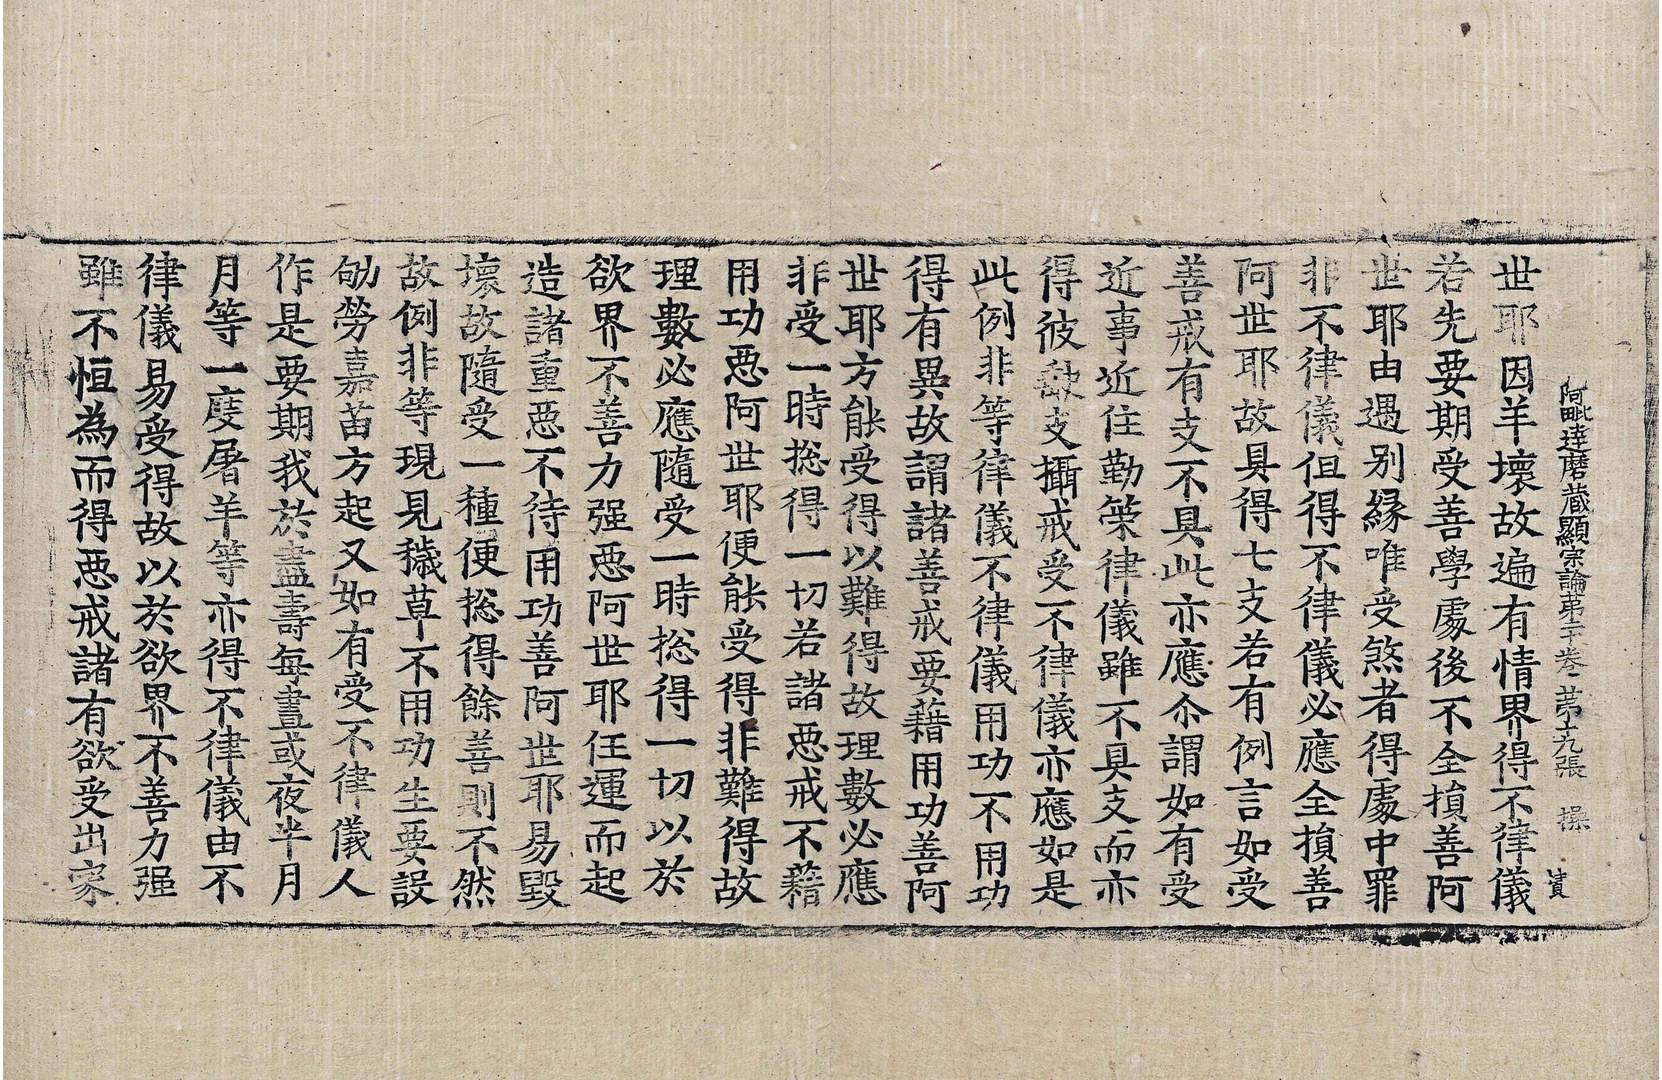 阿毗達磨藏顯宗論第二十卷 第十九張 操
世耶因羊壞故遍有情界得不律儀
若先要期受善學處後不全損善阿
世耶由遇別緣唯受煞者得處中罪
非不律儀但得不律儀必應全損善
阿世耶故具得七支若有例言如受
善戒有支不具此亦應尒謂如有受
近事近住勤策律儀雖不具支而亦
得彼缺支攝戒受不律儀亦應如是
此例非等律儀不律儀用功不用功
得有異故謂諸善戒要藉用功善阿
世耶方能受得以難得故理數必應
非受一時捴得一切若諸惡戒不藉
用功惡阿世耶便能受得非難得故
理數必應隨受一時捴得一切以於
欲界不善力强惡阿世耶任運而起
造諸重惡不待用功善阿世耶易毀
壞故隨受一種便捴得餘善則不然
故例非等現見穢草不用功生要設
劬勞嘉苗方起又如有受不律儀人
作是要期我於盡壽每晝或夜半月
月等一度屠羊等亦得不律儀由不
律儀易受得故以於欲界不善力强
雖不恒為而得惡戒諸有欲受出家